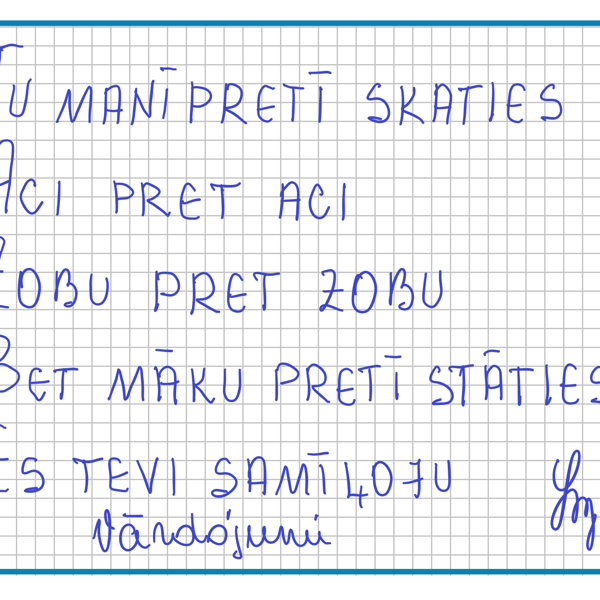 TU MANĪ PRETĪ SKATIES
ACI PRET ACI
ZOBU PRET ZOBU
BET MĀKU PRETĪ STĀTIES
ES TEVI SAMĪĻOJU
Vārdojumi